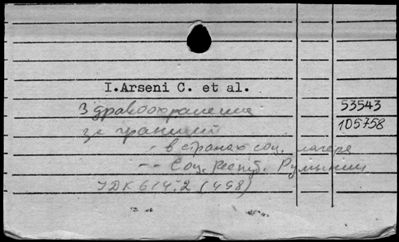 I.Arseni C. et al.
Здравоохранение 53543
за границей 105758
- в странах соц. лагеря
-- Соц. Респуб. Румынии
УДК 614.2 (498)